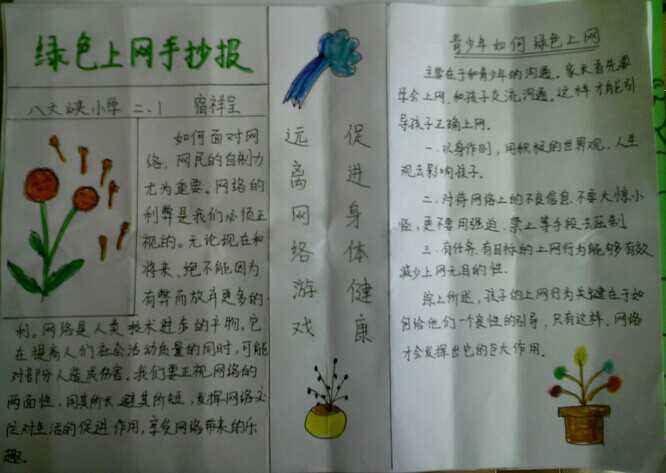 绿色上网手抄报
八大峡小学 二.1 宿祥呈
如何面对网
络,网民的自制力
尤为重要。网络的
利弊是我们必须正
视的。无论现在和
将来,绝不能因为
有弊而放弃更多的
利。网络是人类技术进步的产物。它
在提高人们社会活动质量的同时,可能
对部分人造成伤害。我们要正视网络的
两面性,用其所长,避其所短,发挥网络文
化对生活的促进作用,享受网络带来的乐
趣。
促进身体健康
远离网络游戏
青少年如何绿色上网
主要在于和青少年的沟通。家长首先要
学会上网,和孩子交流,沟通。这样才能引
导孩子正确上网。
一.以身作则,用积极的世界观,人生
观去影响孩子。
二.对待网络上的不良信息,不要大惊小
怪,更不要用强迫.禁止等手段去压制
三.有任务.有目标的上网行为能够有效
减少上网无目的性.
综上所述,孩子的上网行为关键在于如
何给他们一个良性的引导,只有这样,网络
才会发挥出它的巨大作用。